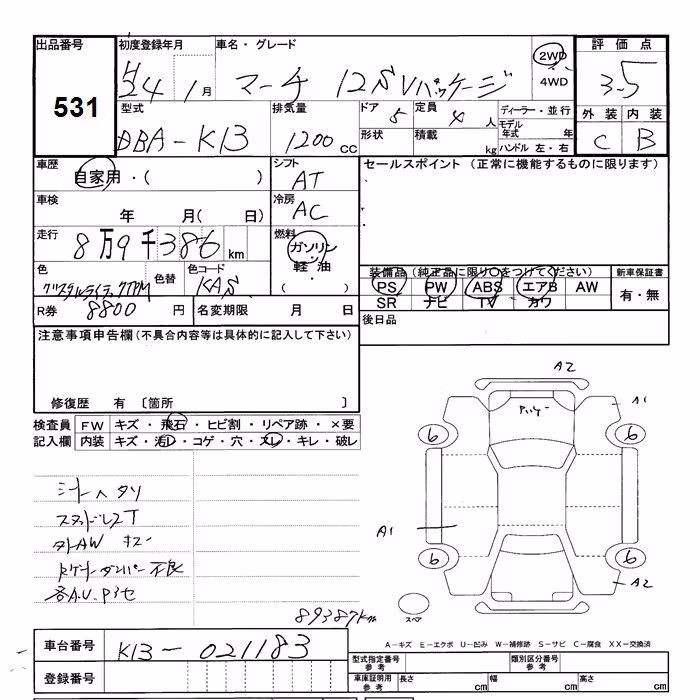 出品番号 初度登録年月 車名・グレード 評価点
531
H24 1月 マーチ 12S Vパッケージ 2WD 4WD 3.5
型式 排気量 ドア 定員 ディーラー・並行 外装 内装
DBA-K13 1200CC 5 人 モデル年式 年 C B
形状 積載 kg ハンドル 左・右
車歴 シフト セールスポイント (正常に機能するものに限ります)
自家用・( ) AT
車検 冷房
年 月( 日) AC
走行 燃料
8万9千386km ガソリン
軽油
( )
色 色替 色コード 装備品 (純正品に限り○をつけてください) 新車保証書
KAS PS PW ABS エアB AW 有・無
SR ナビ TV カワ
R券 8800円 名変期限 月 日
後日品
注意事項申告欄(不具合内容等は具体的に記入して下さい)
修復歴 有 〔箇所 〕
検査員 FW キズ・飛石・ヒビ割・リペア跡・×要
記入欄 内装 キズ・汚レ・コゲ・穴・スレ・キレ・破レ
A2
A1
6 6
シートヘタリ
スタッドレスT
A1
外AW キズ
6 6
不良
A2
スペア
89387Km
A-キズ E-エクボ U-凹み W-補修跡 S-サビ C-腐食 XX-交換済
車台番号 K13-021183
型式指定番号 参考 類別区分番号 参考
登録番号
車庫証明用 参考 長さ cm 幅 cm 高さ cm